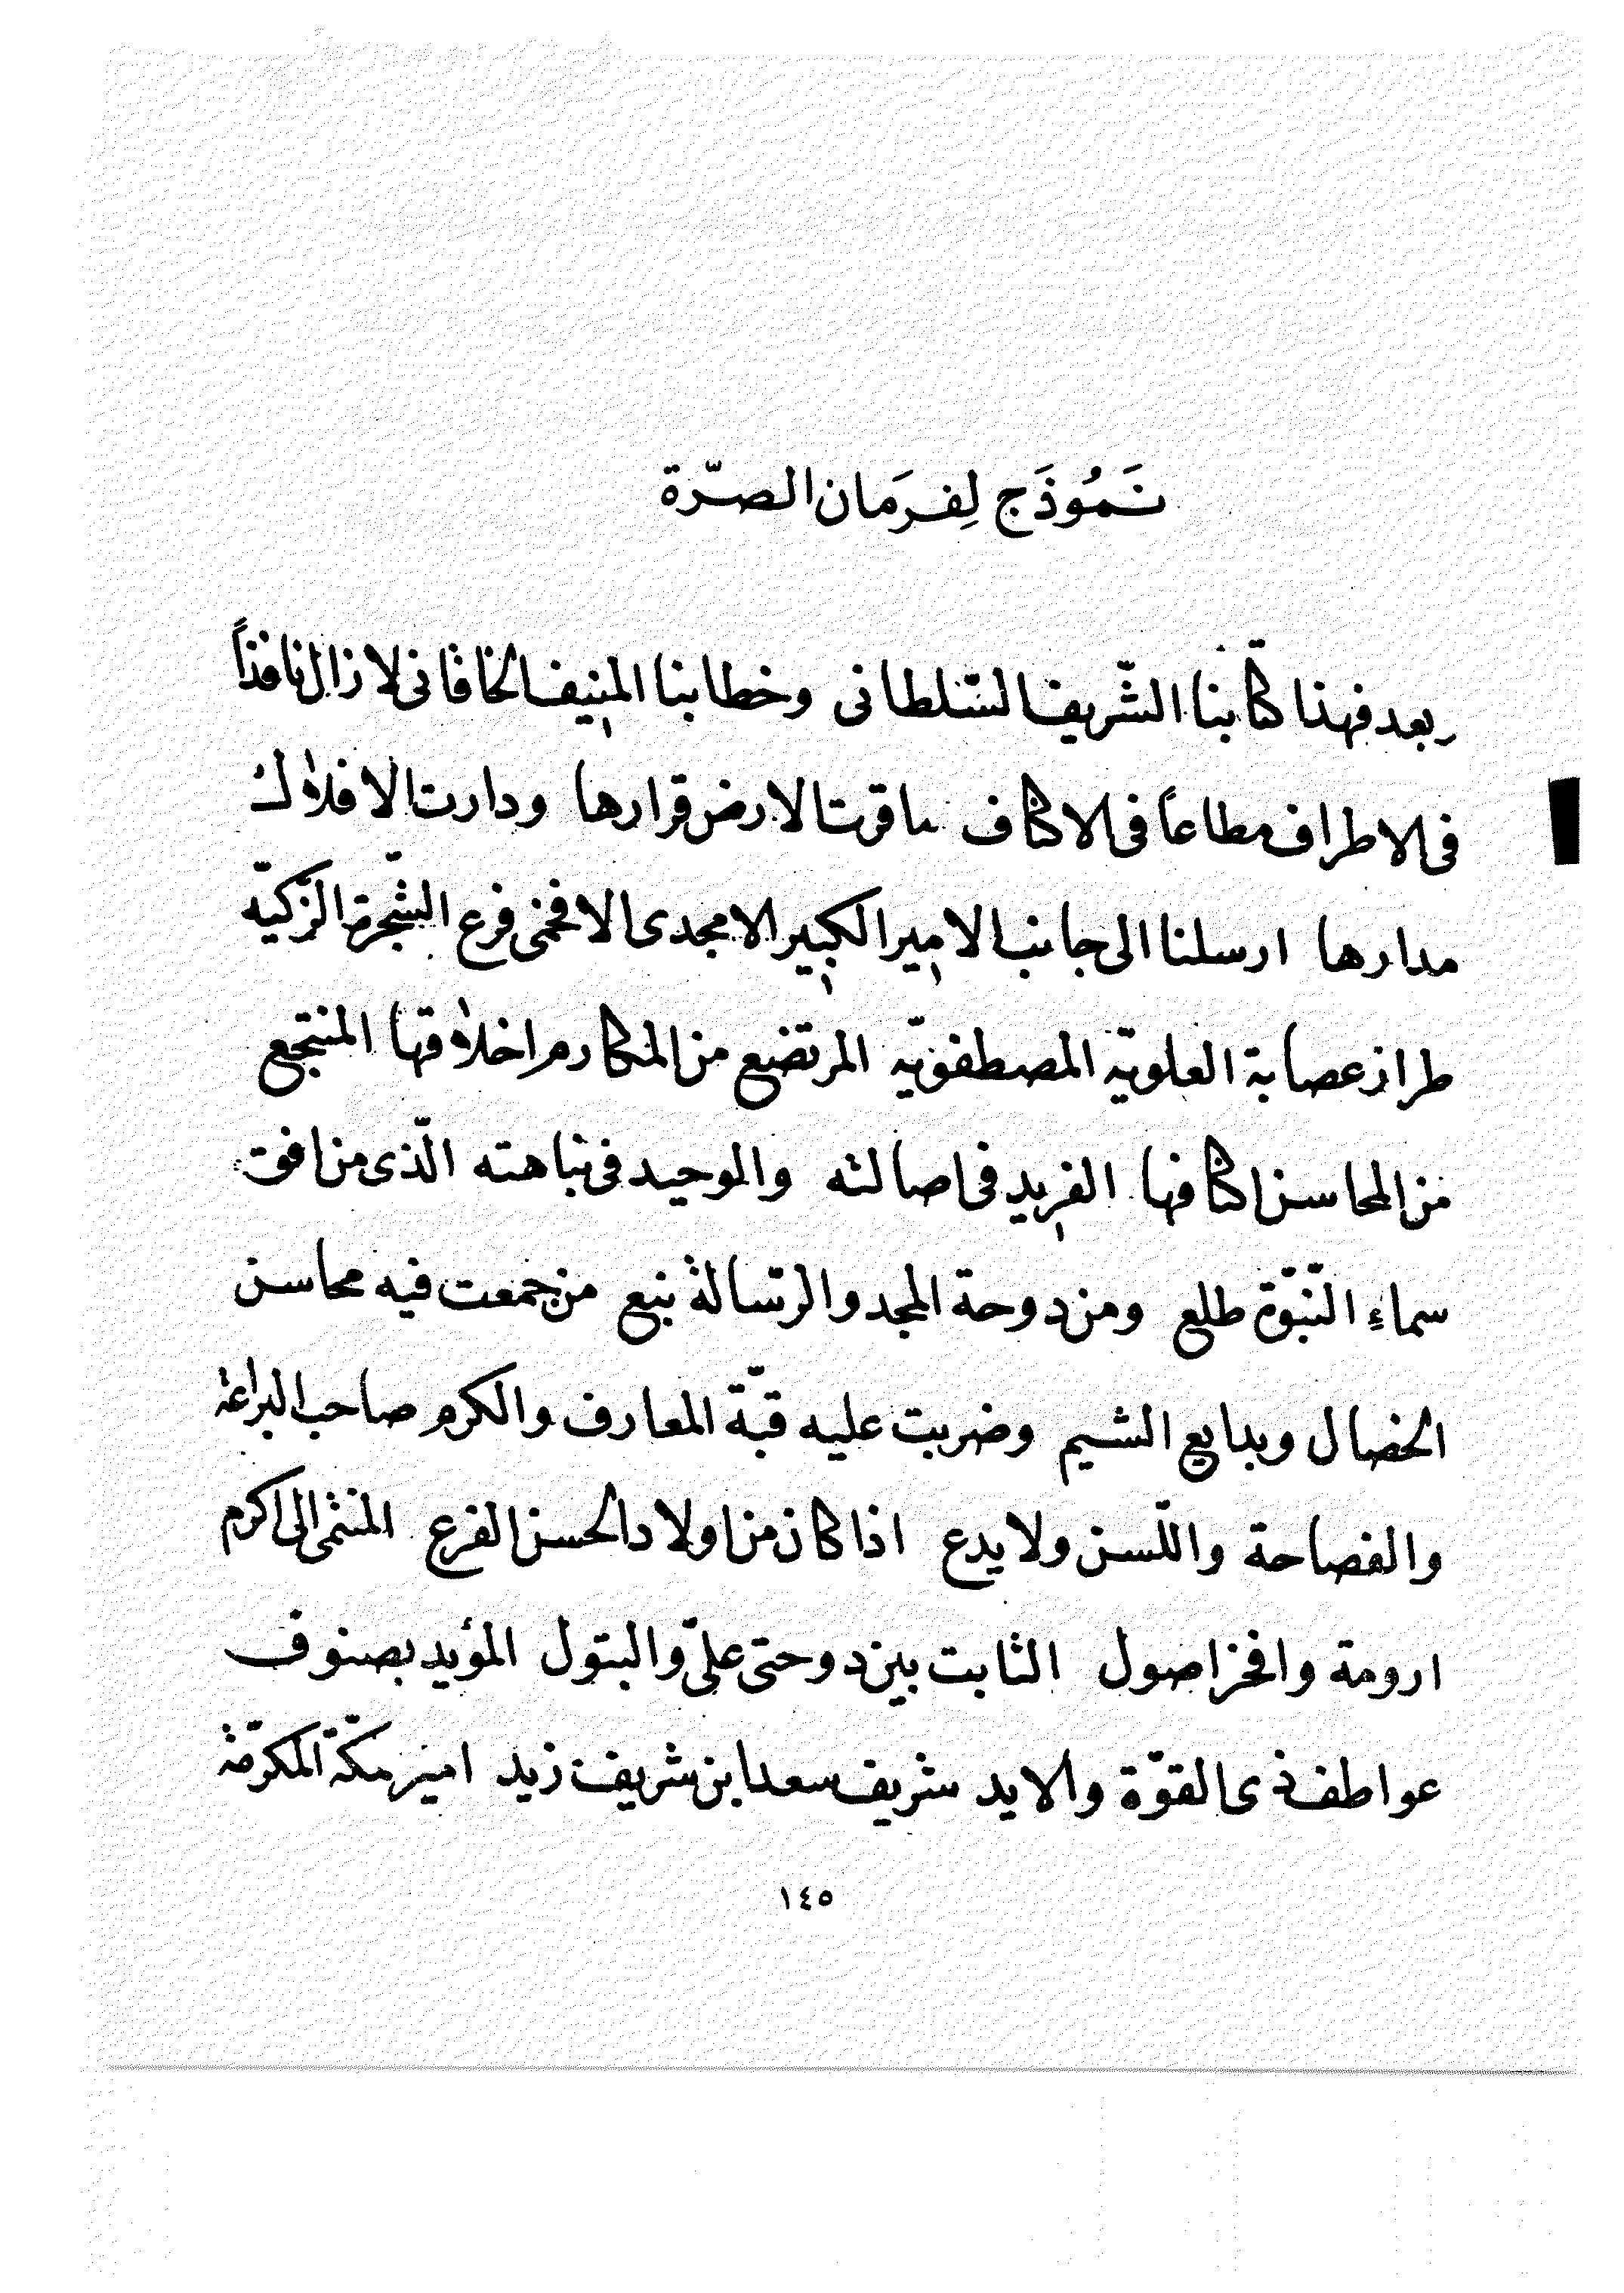 نَمُوذَج لِفرَمان الصّرة
وبعد فهذا كتابنا الشّريف السّلطانى وخطابنا المنيف الخاقانى لا زال نافذاً
فى الاطراف مطاعاً فى الاكناف ما قرت الارض قرارها ودارت الافلاك
مدارها ارسلنا الى جانب الامير الكبير الامجدى الافخمى فرع الشّجرة الزّكيّه
طراز عصابة العلويّه المصطفويّه المرتضع من المكارم اخلاقها المنتجع
من المحاسن اكنافها الفريد فى اصالته والوحيد فى نباهته الّذى من افق
سماء النّبوّة طلع ومن دوحة المجد والرّسالة نبع من جمعت فيه محاسن
الخصال وبدايع الشيم وضربت عليه قبّة المعارف والكرم صاحب البراعة
والفصاحة واللّسن ولا يدع اذا كان من اولاد الحسن الفرع المنتمى الى اكرم
ارومة وافخر اصول الثابت بين دوحتى علىّ والبتول المؤيد بصنوف
عواطف ذى القوّة والايد شريف سعد ابن شريف زيد امير مكّة المكرمّة
١٤٥